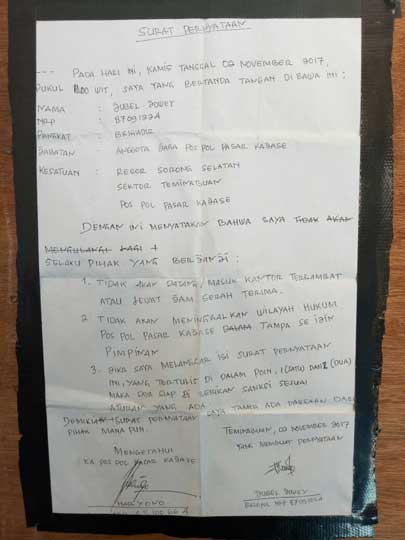 SURAT PERNYATAAN
--- PADA HARI INI, KAMIS TANGGAL 02 NOVEMBER 2017,
PUKUL WIT, SAYA YANG BERTANDA TANGAN DI BAWA INI :
NAMA : JUBEL JOUEY
NRP : 87091224
PANGKAT : BRIGADIR
JABATAN : ANGGOTA JAGA POS POL PASAR KAJASE
KESATUAN : RESOR SORONG SELATAN
SEKTOR TEMINABUAN
POS POL PASAR KAJASE
DENGAN INI MENYATAKAN BAHWA SAYA TIDAK AKAN
MENGULANGI LAGI
SELAKU PIHAK YANG BERJANJI :
1. TIDAK AKAN DATANG, MASUK KANTOR TERLAMBAT
ATAU LEWAT JAM SERAH TERIMA.
2. TIDAK AKAN MENINGGALKAN WILAYAH HUKUM
POS POL PASAR KAJASE DALAM TANPA SE IJIN
PIMPINAN
3. JIKA SAYA MELANGGAR ISI SURAT PERNYATAAN
INI, YANG TERTULIS DI DALAM POIN, 1 (SATU) DAN 2 (DUA)
MAKA SIAP DI BERIKAN SANKSI SESUAI
ATURAN YANG ADA
DEMIKIAN SURAT PERNYATAAN SAYA TANPA ADA PAKSAAN DARI
PIHAK MANA PUN.
TEMINABUAN, 02 NOVEMBER 2017
YANG MEMBUAT PERNYATAAN
MENGETAHUI
KA POS POL PASAR KAJASE
HARYONO
JUBEL JOUEY